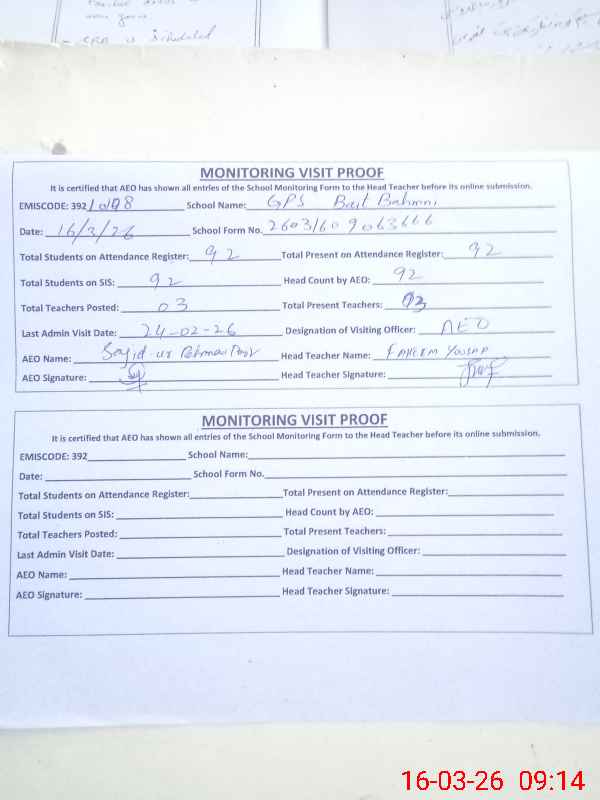 SRA is Scheduled
MONITORING VISIT PROOF
It is certified that AEO has shown all entries of the School Monitoring Form to the Head Teacher before its online submission.
EMISCODE: 392 School Name: GPS Bait Bahmni
Date: 16/3/26 School Form No. 2603/609063666
Total Students on Attendance Register: 92 Total Present on Attendance Register: 92
Total Students on SIS: 92 Head Count by AEO: 92
Total Teachers Posted: 03 Total Present Teachers: 03
Last Admin Visit Date: 24-02-26 Designation of Visiting Officer: AEO
AEO Name: Sajid ur Rehman Head Teacher Name: FAHEEM YOUSAF
AEO Signature: Head Teacher Signature:
MONITORING VISIT PROOF
It is certified that AEO has shown all entries of the School Monitoring Form to the Head Teacher before its online submission.
EMISCODE: 392 School Name:
Date: School Form No.
Total Students on Attendance Register: Total Present on Attendance Register:
Total Students on SIS: Head Count by AEO:
Total Teachers Posted: Total Present Teachers:
Last Admin Visit Date: Designation of Visiting Officer:
AEO Name: Head Teacher Name:
AEO Signature: Head Teacher Signature:
16-03-26 09:14